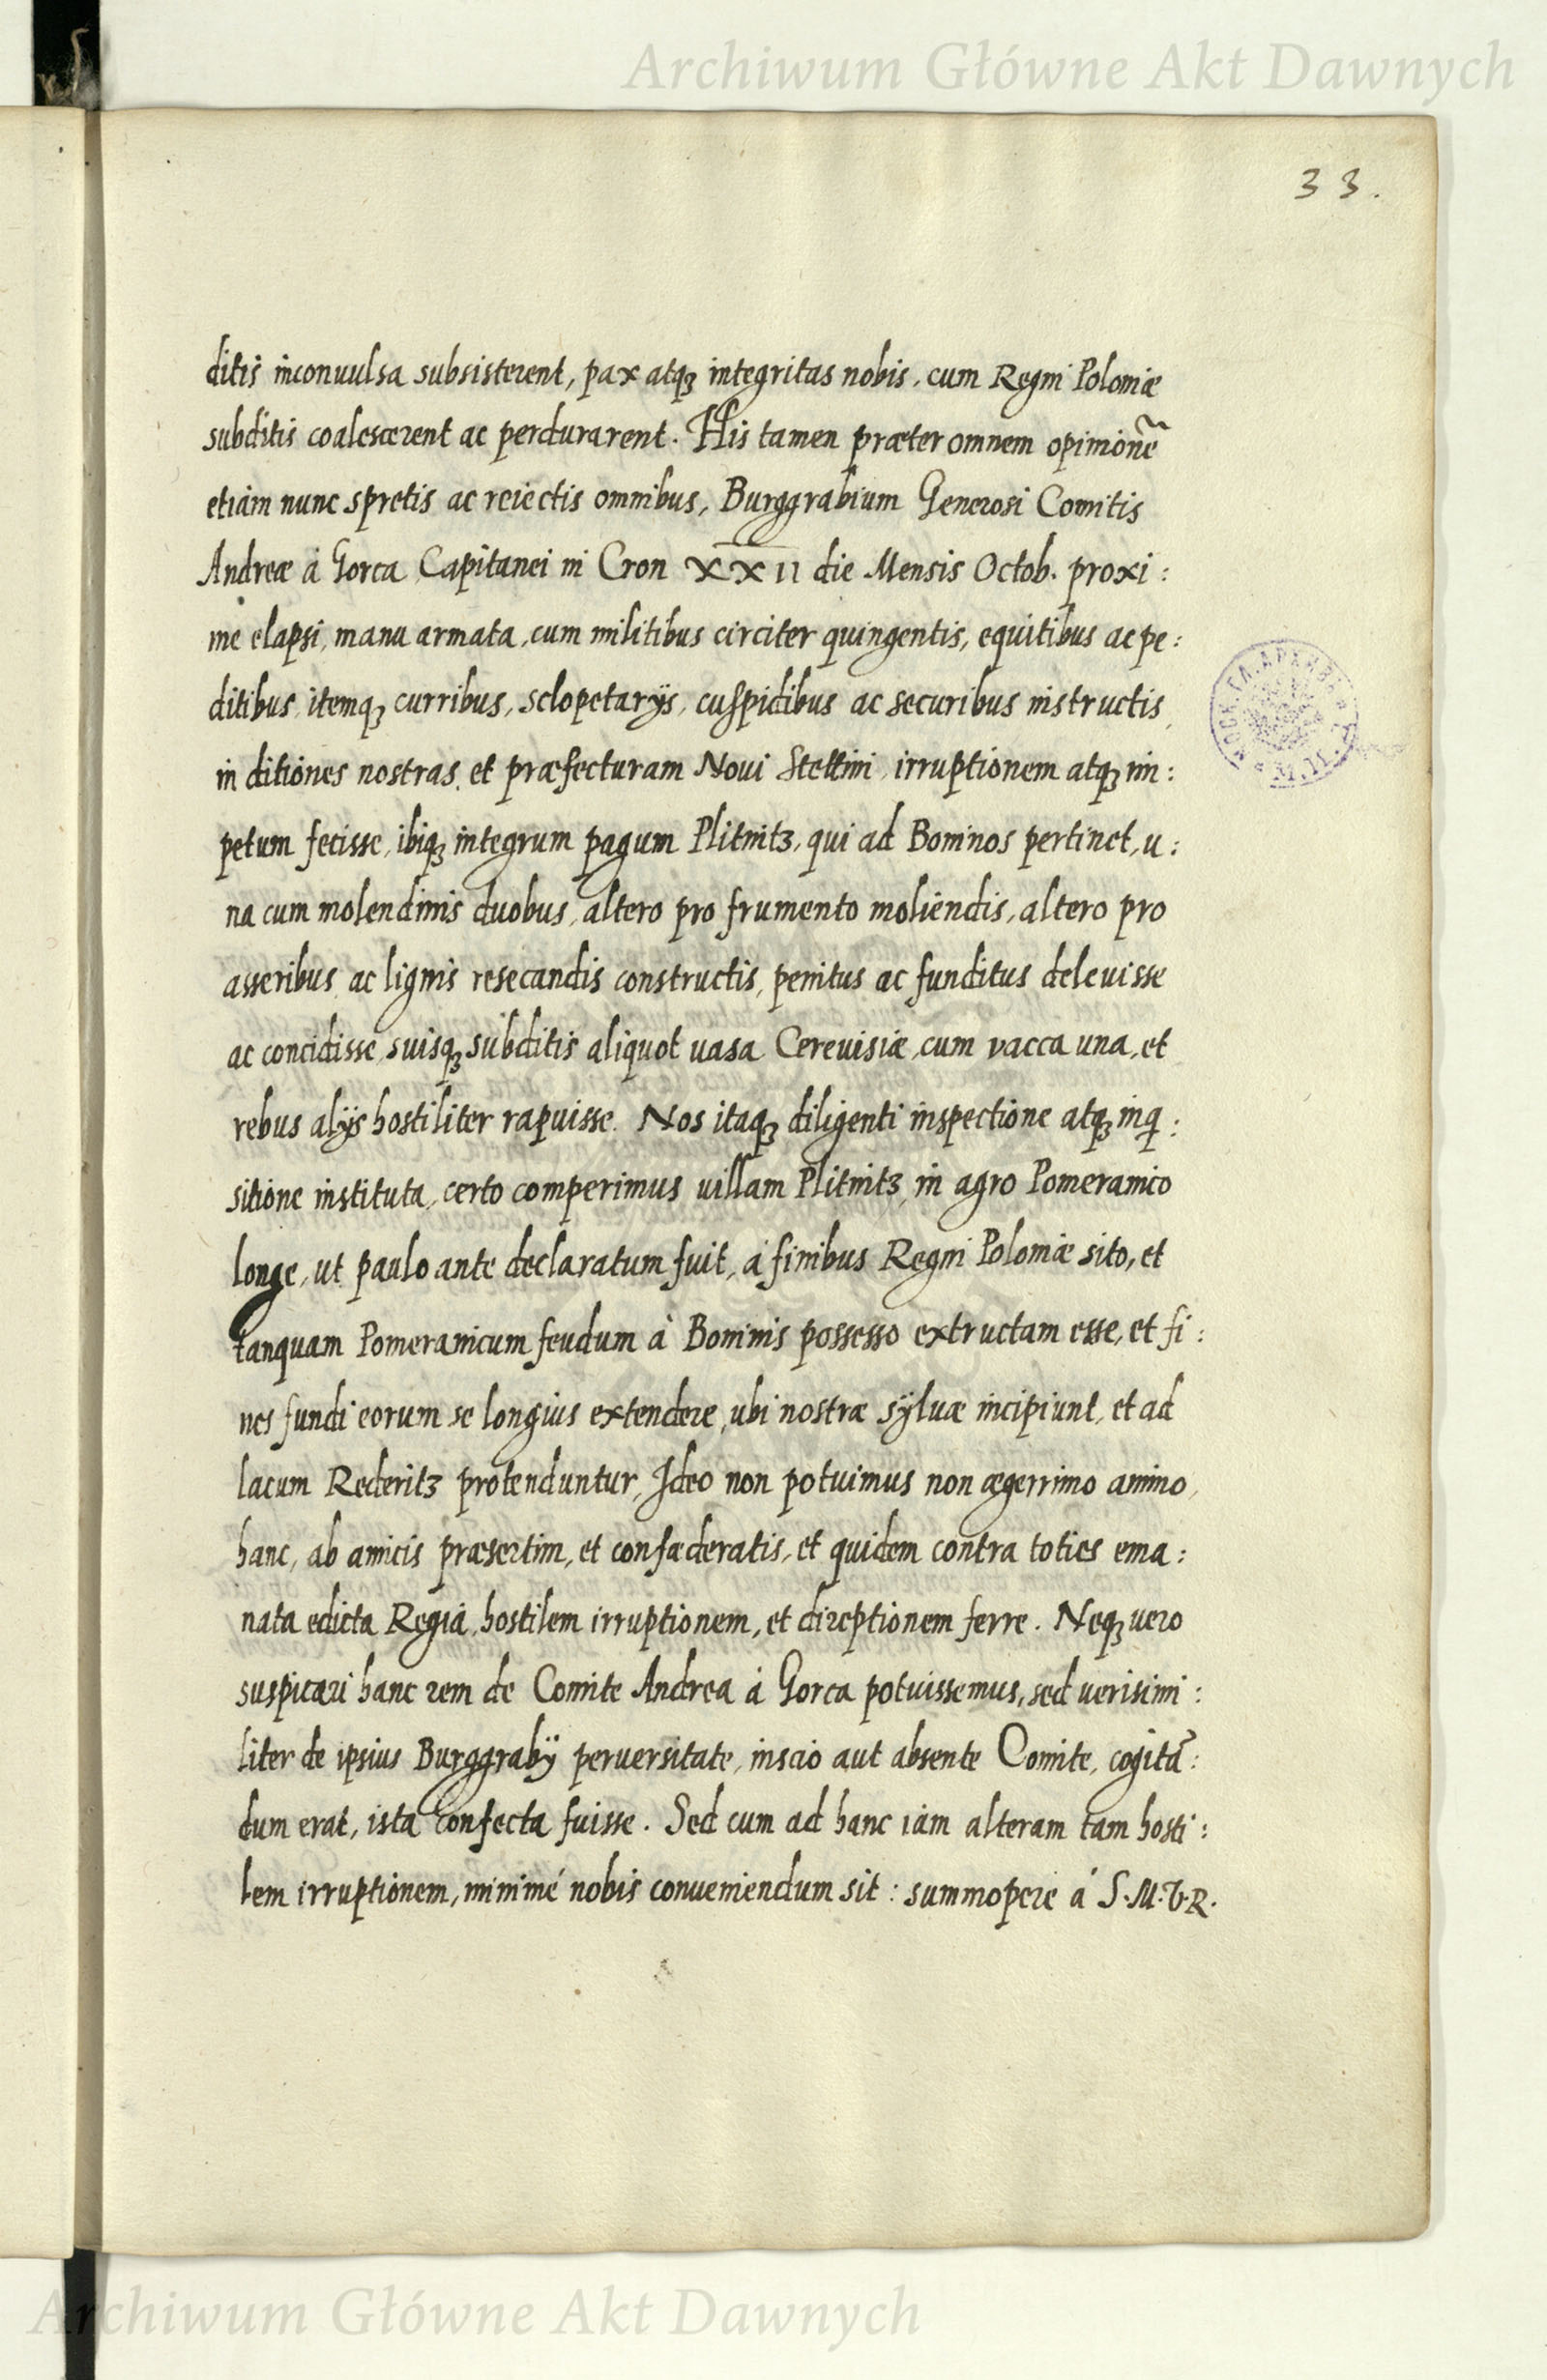 Archiwum Główne Akt Dawnych
33.
ditis inconuulsa subsisterent, pax atqꝫ integritas nobis, cum Regni Poloniæ
subditis coalescerent ac perdurarent. His tamen præter omnem opinionē
etiam nunc spretis ac reiectis omnibus, Burggrabium Generosi Comitis
Andreæ à Gorca Capitanei in Cron XXII die Mensis Octob. proxi:
me elapsi, manu armata, cum militibus circiter quingentis, equitibus ac pe:
ditibus, itemqꝫ curribus, sclopetarÿs, cuspidibus ac securibus instructis,
in ditiones nostras, et præfecturam Noui Stettini, irruptionem atqꝫ im:
petum fecisse, ibiqꝫ integrum pagum Plitnitz, qui ad Boninos pertinet, u:
na cum molendinis duobus, altero pro frumento moliendis, altero pro
asseribus ac lignis resecandis constructis, penitus ac funditus deleuisse
ac concidisse, suisqꝫ subditis aliquot uasa Cereuisiæ, cum vacca una, et
rebus alÿs hostiliter rapuisse. Nos itaqꝫ diligenti inspectione atqꝫ inq̃:
sitione instituta, certo comperimus uillam Plitnitz, in agro Pomeranico
longe, ut paulo ante declaratum fuit, à finibus Regni Poloniæ sito, et
tanquam Pomeranicum feudum à Boninis possesso extructam esse, et fi:
nes fundi eorum se longius extendere, ubi nostræ sÿluæ incipiunt, et ad
lacum Rederitz protenduntur, Ideo non potuimus non ægerrimo animo,
hanc, ab amicis præsertim, et confæderatis, et quidem contra toties ema:
nata edicta Regia, hostilem irruptionem, et direptionem ferre. Neqꝫ uero
suspicari hanc rem de Comite Andrea à Gorca potuissemus, sed uerisimi:
liter de ipsius Burggrabÿ peruersitate, inscio aut absente Comite, cogitā:
dum erat, ista confecta fuisse. Sed cum ad hanc iam alteram tam hosti:
lem irruptionem, minimé nobis conueniendum sit: summopere á S.M.V.R.
Archiwum Główne Akt Dawnych